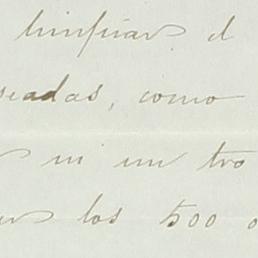 limpiar el
seadas, como
ni un tro
los 500